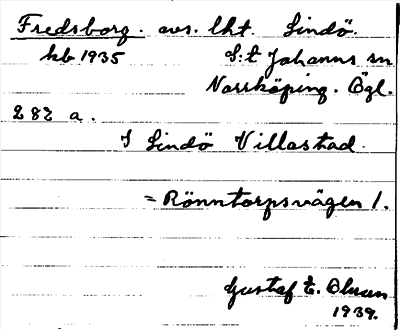 Fredsborg. avs. lht. Lindö.
kb 1935 S:t Johanns sn
Norrköping. Ögl.
282 a.
I Lindö Villastad.
= Rönntorpsvägen 1.
Gustaf E. Bluun
1939.